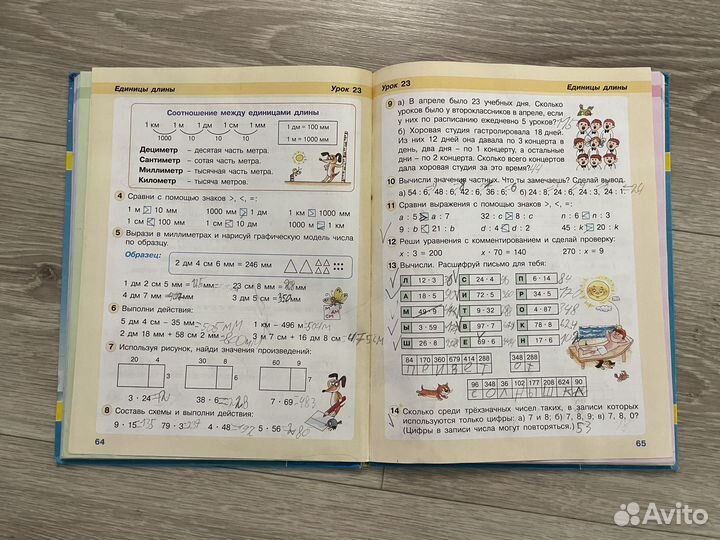 Единицы длины Урок 23
Соотношение между единицами длины
1 км 1 м 1 дм 1 см 1 мм
1000 10 10 10
1 дм = 100 мм
1 м = 1000 мм
Дециметр – десятая часть метра.
Сантиметр – сотая часть метра.
Миллиметр – тысячная часть метра.
Километр – тысяча метров.
4 Сравни с помощью знаков >, <, =:
1 м > 10 мм 1000 мм > 1 дм 1 км > 1000 мм
1 см < 100 мм 1 см < 10 дм 1000 м 1 км
5 Вырази в миллиметрах и нарисуй графическую модель числа
по образцу.
Образец: 2 дм 4 см 6 мм = 246 мм
1 дм 2 см 5 мм 23 см 8 мм
4 дм 7 мм 3 дм 5 см = 350 мм
6 Выполни действия:
5 дм 4 см – 35 мм 1 км – 496 м = 504 м
2 дм 18 мм + 58 см 2 мм 3 м 7 см + 16 дм 8 см = 475 см
7 Используя рисунок, найди значения произведений:
20 4 30 8 60 9
3 6 7
3 · 24 38 · 6 7 · 69 = 483
8 Составь схемы и выполни действия:
9 · 15 = 135 79 · 3 = 237 4 · 48 = 192 5 · 56 = 280
64
Урок 23 Единицы длины
9 а) В апреле было 23 учебных дня. Сколько
уроков было у второклассников в апреле, если
у них по расписанию ежедневно 5 уроков?
б) Хоровая студия гастролировала 18 дней.
Из них 12 дней она давала по 3 концерта в
день, два дня – по 1 концерту, а остальные
дни – по 2 концерта. Сколько всего концертов
дала хоровая студия за это время? 44
10 Вычисли значения частных. Что ты замечаешь? Сделай вывод.
а) 54 : 6, 48 : 6, 42 : 6, 36 : 6 б) 24 : 8, 24 : 6, 24 : 3, 24 : 1.
11 Сравни выражения с помощью знаков >, <, =:
а : 5 > а : 7 32 : с > 8 : с n : 6 < n : 3
9 : b < 21 : b d : 4 < d : 2 45 : k > 20 : k
12 Реши уравнения с комментированием и сделай проверку:
х : 3 = 200 х · 70 = 140 270 : х = 9
13 Вычисли. Расшифруй письмо для тебя:
Л 12 · 3 С 24 · 4 П 6 · 14
А 18 · 5 И 160 Р 34 · 5
М Т О
Ы 3 · 59 В 97 · 7 К 78 · 8
Ш Е Н 17 · 6
64 170 360 679 414 288 348 288
П Р И В Е Т О Т
96 348 36 102 177 208 624 90
С О Л Н Ы Ш К А
14 Сколько среди трёхзначных чисел таких, в записи которых
используются только цифры: а) 7 и 8; б) 7, 8, 9; в) 7, 8, 0?
(Цифры в записи числа могут повторяться.) 53
65
Avito